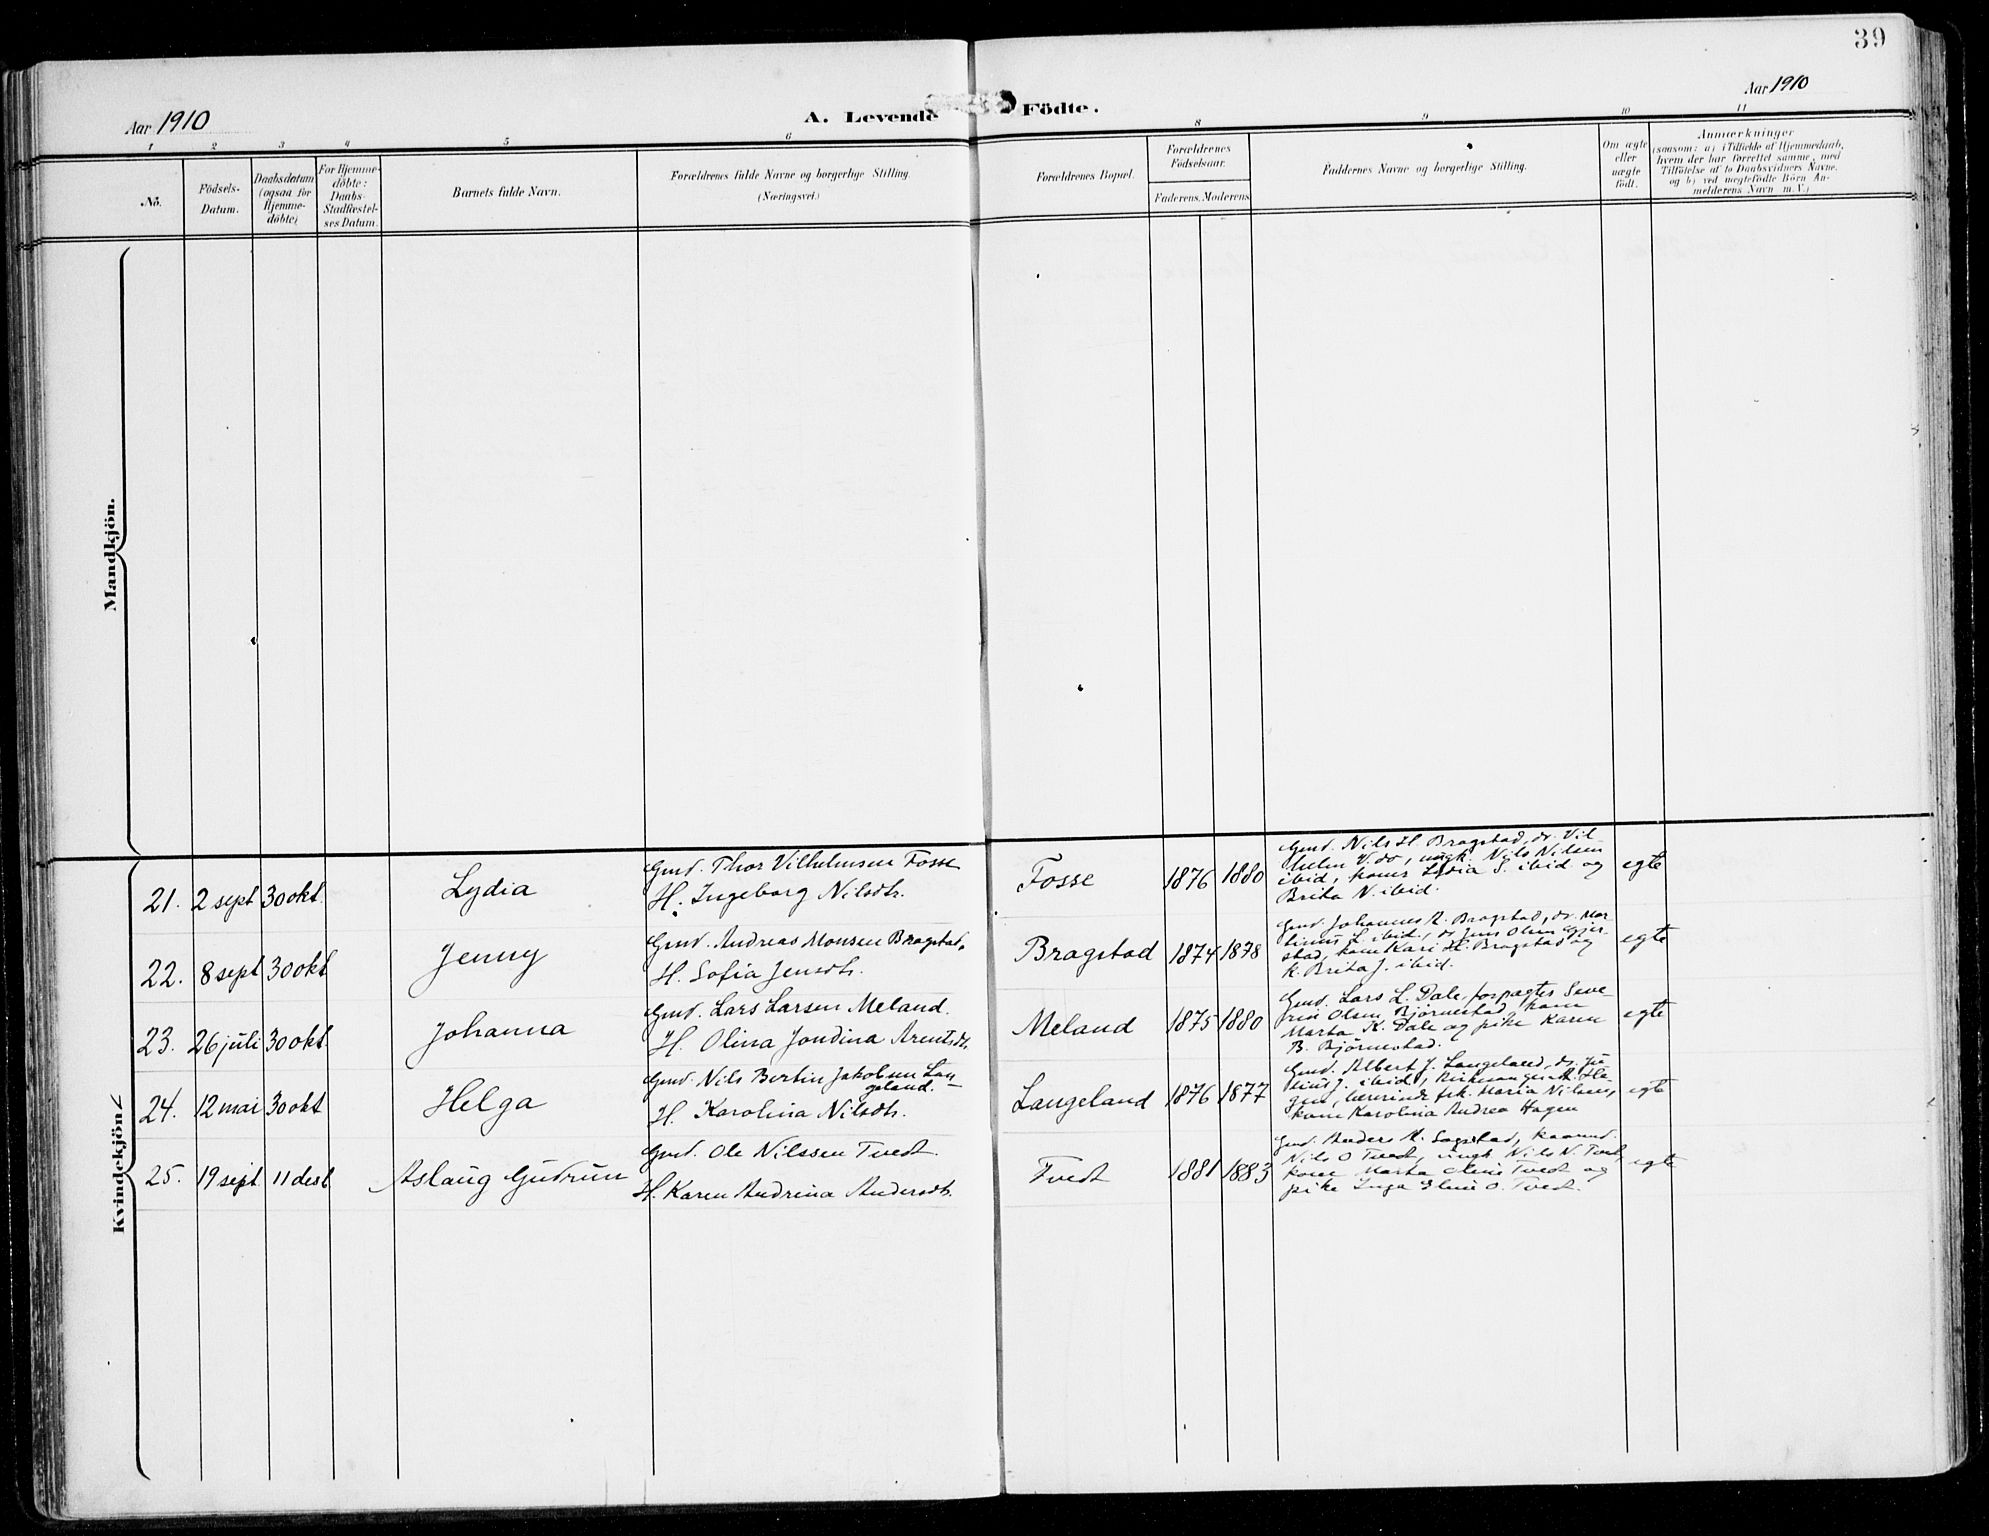 39
Aar 1910
A. Levende Födte.
Aar 1910
1 2 3 4 5 6 8 9 10 11
No.
Födsels-
Datum.
Daabsdatum
(ogsaa for
Hjemme-
döbte)
For Hjemme-
döbte:
Daabs-
Stadfæstel-
ses Datum.
Barnets fulde Navn.
Forældrenes fulde Navne og borgerlige Stilling.
(Næringsvei.)
Forældrenes Bopæl.
Forældrenes
Födselsaar.
Faderens. Moderens
Faddernes Navne og borgerlige Stilling.
Om ægte
eller
uægte
födt.
Anmærkninger
(saasom: a) i Tilfælde af Hjemmedaab,
hvem der har forrettet samme, med
Tilföielse af to Daabsvidners Navne.
og b) ved uægtefödte Börn An-
melderens Navn m. V.)
Mandkjön.
Kvindekjön
21. 2 sept 30 okt. Lydia
Gmd. Thor Vilhelmsen Fosse
H. Ingeborg Nilsdtr.
Fosse 1876 1880
Gmd. Nils H. Bragstad, do. Vil
helm V. do, ungk. Nils Nilsen
ibid, kone Lydia S. ibid. og
Brita N. ibid.
egte
22. 8 sept 30 okt Jenny
Gmd. Andreas Monsen Bragstad.
H. Sofia Jensdtr.
Bragstad 1874 1878
Gmd. Johannes A. Bragstad, do. Mar
tinus L. ibid., do Jens Olsen
stad, kone Kari H. Bragstad og
k. Brita J. ibid.
egte
23. 26 juli 30 okt. Johanna
Gmd. Lars Larsen Meland.
H. Olina Jondina Arentsdtr.
Meland 1875 1880
Gmd. Lars L. Dale, forpagter Seve-
rin Olsen Bjørnestad, kone
Marta K. Dale og pike Karen
B. Bjørnestad.
egte
24. 12 mai 30 okt Helga
Gmd. Nils Bertin Jakobsen Lan
geland.
H. Karolina Nilsdtr.
Langeland 1876 1877
Gmd. Albert J. Langeland, do.
J. ibid, Kirkesanger A. Ha
gen, lærerinde frk. Maria Nilsen,
kone Karolina Andrea Hagen
egte
25. 19 sept 11 dest Aslaug Gudrun
Gmd. Ole Nilssen Tvedt.
H. Karen Andrina Andersdtr.
Tvedt 1881 1883
Gmd. Anders A. Sagstad, kaarmd.
Nils O Tvedt, ungk Nils N. Tvedt,
kone Marta Tvedt og
pike Inga Eline O. Tvedt.
egte